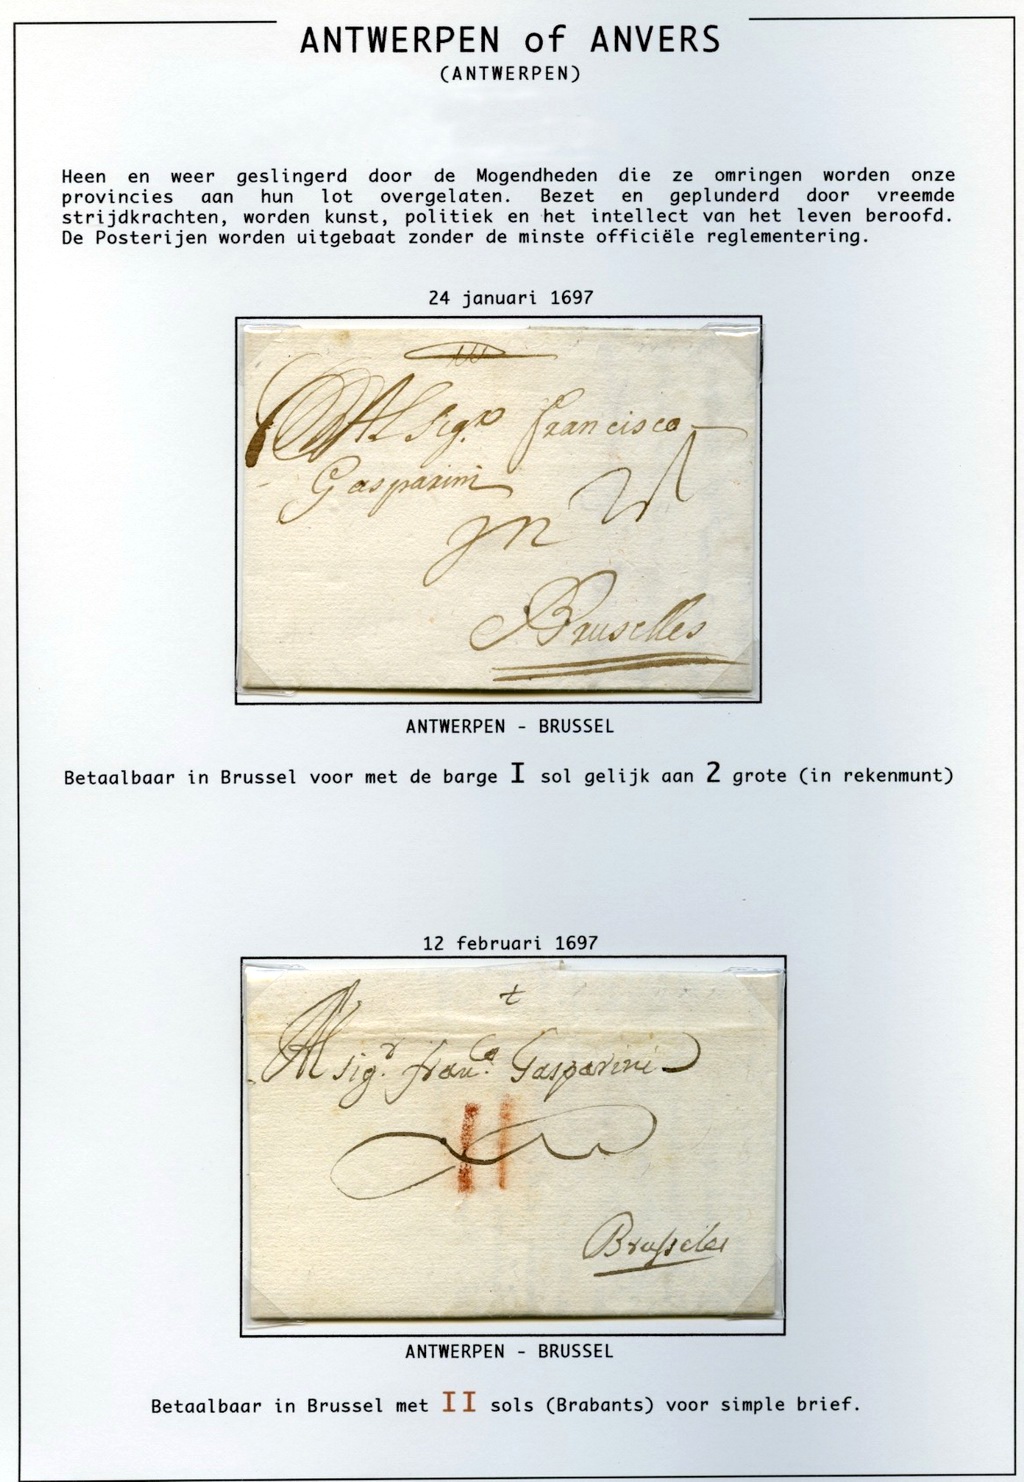 ANTWERPEN of ANVERS
(ANTWERPEN)
Heen en weer geslingerd door de Mogendheden die ze omringen worden onze
provincies aan hun lot overgelaten. Bezet en geplunderd door vreemde
strijdkrachten, worden kunst, politiek en het intellect van het leven beroofd.
De Posterijen worden uitgebaat zonder de minste officiële reglementering.
24 januari 1697
Al Sig.ro Francisco
Gasparini
in
Bruselles
ANTWERPEN - BRUSSEL
Betaalbaar in Brussel voor met de barge I sol gelijk aan 2 grote (in rekenmunt)
12 februari 1697
Al sig.r fran.co Gasparini
II
Brusseles
ANTWERPEN - BRUSSEL
Betaalbaar in Brussel met II sols (Brabants) voor simple brief.